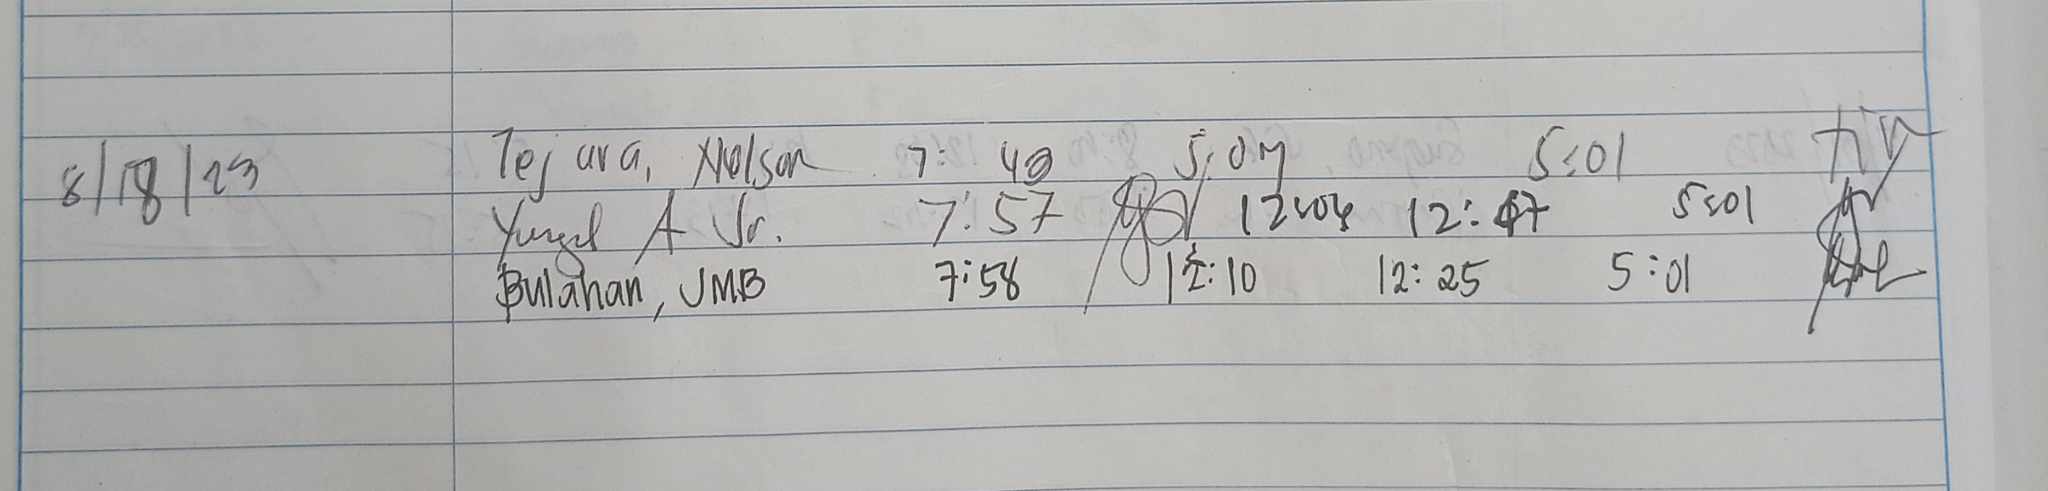 8/18/23 Tejara, Nelson 7:49 5:01
A Jr. 7:57 12:04 12:47 5:01
Bulahan, JMB 7:58 12:10 12:25 5:01